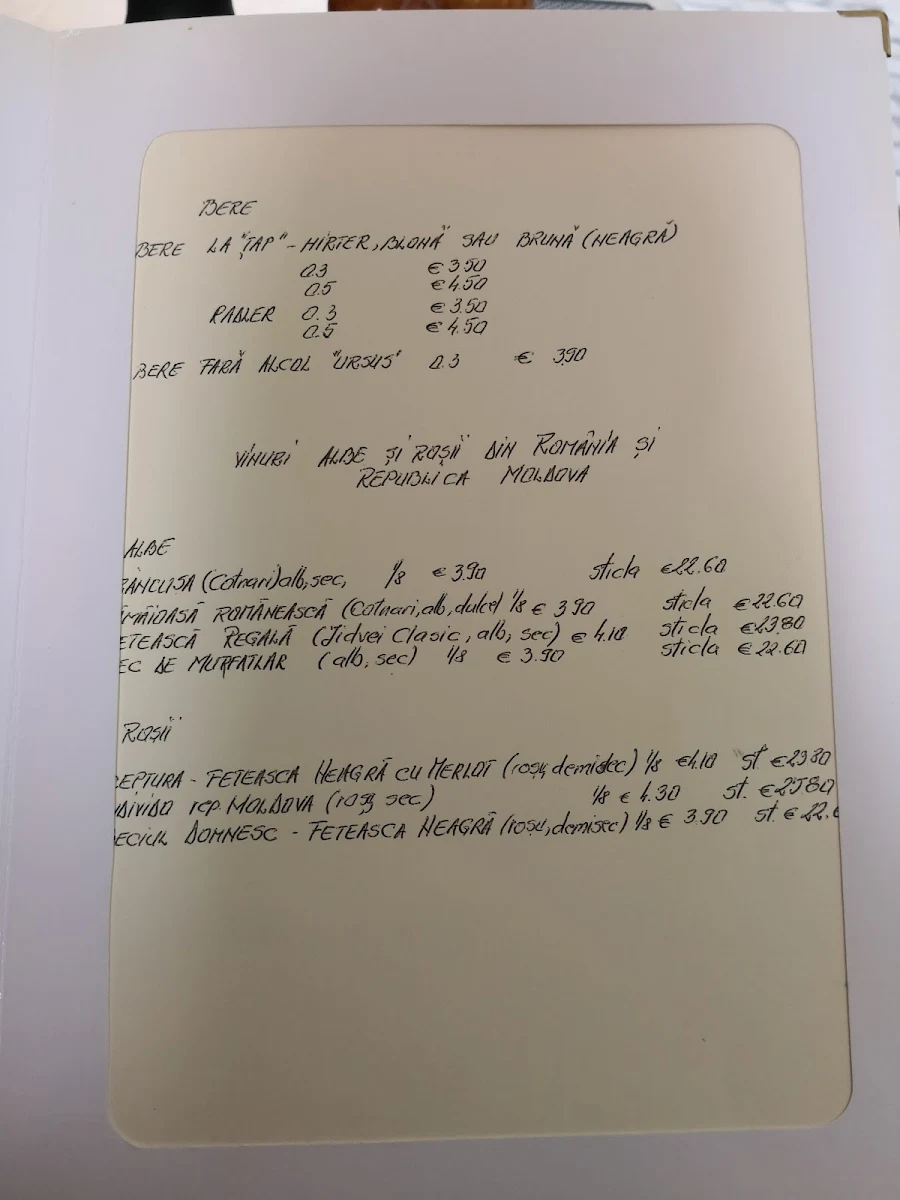 BERE
BERE LA "ȚAP" - HIRTER, BLONĂ SAU BRUNĂ (NEAGRĂ)
0.3 € 3.50
0.5 € 4.50
RADLER 0.3 € 3.50
0.5 € 4.50
BERE FARĂ ALCOL "URSUS" 0.3 € 3.90
VINURI ALBE ȘI ROȘII DIN ROMÂNIA ȘI
REPUBLICA MOLDOVA
ALBE
RÂNCUSA (Cotnari) alb, sec, 1/8 € 3.90 sticla € 22.60
MÂIOASĂ ROMÂNEASCĂ (Cotnari, alb, dulce) 1/8 € 3.90 sticla € 22.60
ETEASCĂ REGALĂ (Jidvei Clasic, alb, sec) € 4.10 sticla € 23.80
EC DE MURFATLAR (alb, sec) 1/8 € 3.90 sticla € 22.60
ROȘII
EPTURA - FETEASCA NEAGRĂ CU MERLOT (roșu, demisec) 1/8 € 4.10 st € 23.80
DIVIDO rep. MOLDOVA (roșu sec) 1/8 € 4.30 st. €
ECIUL DOMNESC - FETEASCA NEAGRĂ (roșu, demisec) 1/8 € 3.90 st. € 22.6